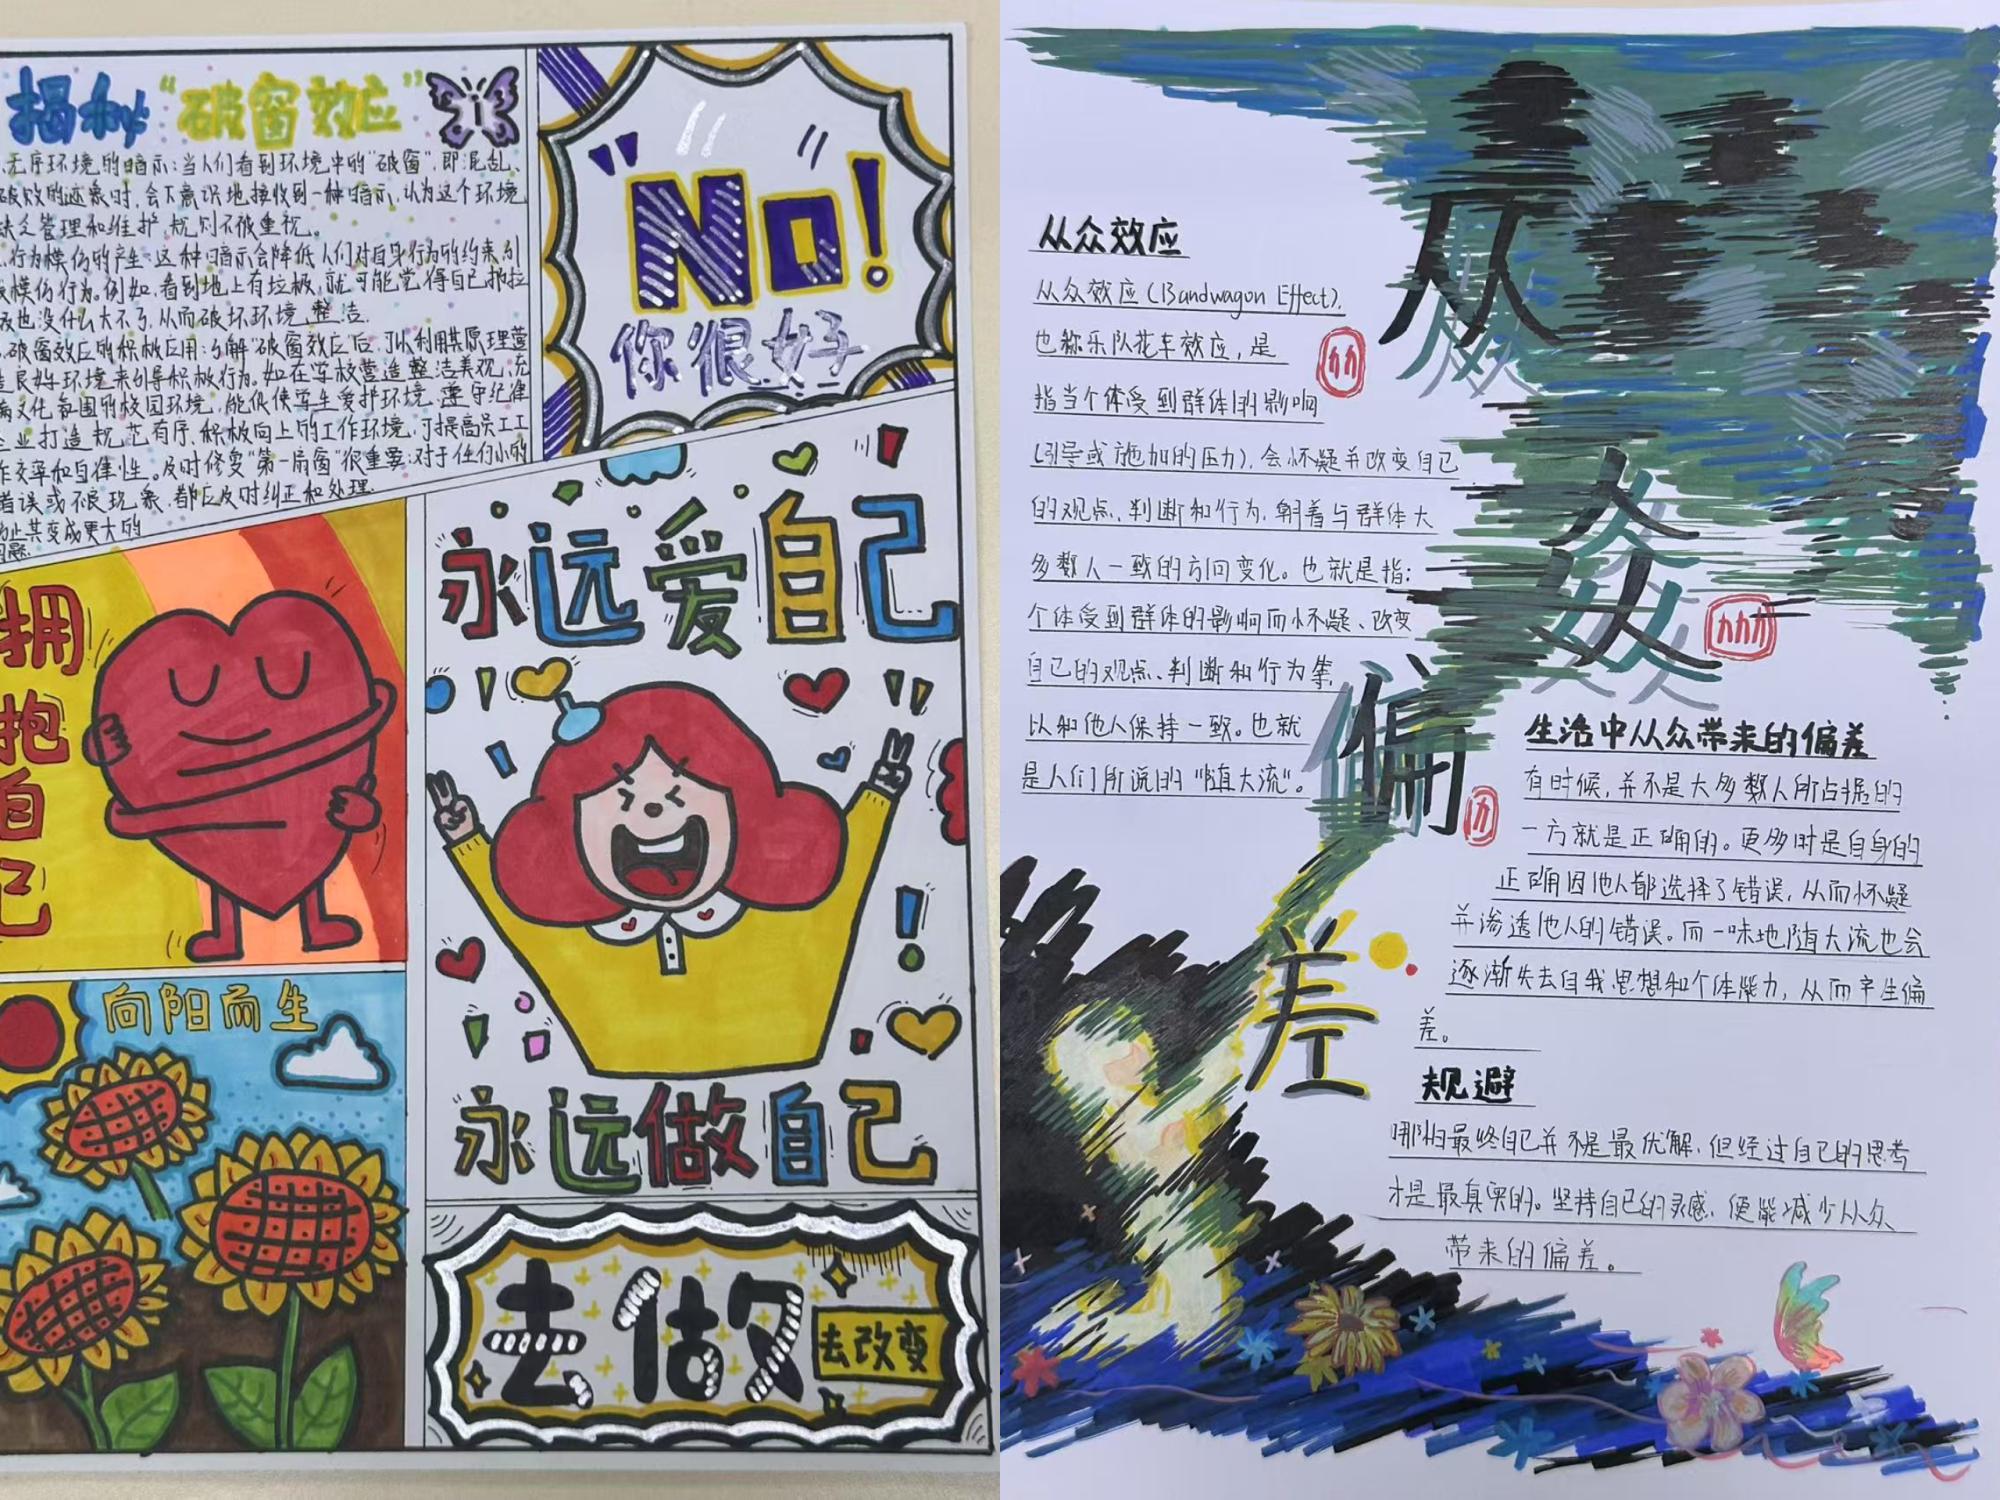 揭秘“破窗效应”
无序环境的暗示：当人们看到环境中的“破窗”，即混乱、
破败的迹象时，会下意识地接收到一种暗示，认为这个环境
缺乏管理和维护，规则不被重视。
行为模仿的产生：这种暗示会降低人们对自身行为的约束，引
模仿行为。例如，看到地上有垃圾，就可能觉得自己扔垃
圾也没什么大不了，从而破坏环境整洁。
破窗效应的积极应用：了解“破窗效应”后，可以利用其原理营
造良好环境来引导积极行为。如在学校营造整洁美观、充
满文化氛围的校园环境，能促使学生爱护环境、遵守纪律
企业打造规范有序、积极向上的工作环境，可提高员工工
作效率和自律性。及时修复“第一扇窗”很重要：对于任何小的
错误或不良现象，都应及时纠正和处理
防止其变成更大的
问题
“No!”
你很好
拥抱自己
永远爱自己
永远做自己
向阳而生
去做
去改变
从众效应
从众效应(Bandwagon Effect),
也称乐队花车效应，是
指当个体受到群体的影响
(引导或施加的压力)，会怀疑并改变自己
的观点、判断和行为，朝着与群体大
多数人一致的方向变化。也就是指：
个体受到群体的影响而怀疑、改变
自己的观点、判断和行为等，
以和他人保持一致。也就
是人们所说的“随大流”。
从
众
偏
差
生活中从众带来的偏差
有时候，并不是大多数人所占据的
一方就是正确的。更多时是自身的
正确因他人都选择了错误，从而怀疑
并渗透他人的错误。而一味地随大流也会
逐渐失去自我思想和个体能力，从而产生偏
差。
规避
哪怕最终自己并不是最优解，但经过自己的思考
才是最真实的。坚持自己的灵感，便能减少从众
带来的偏差。